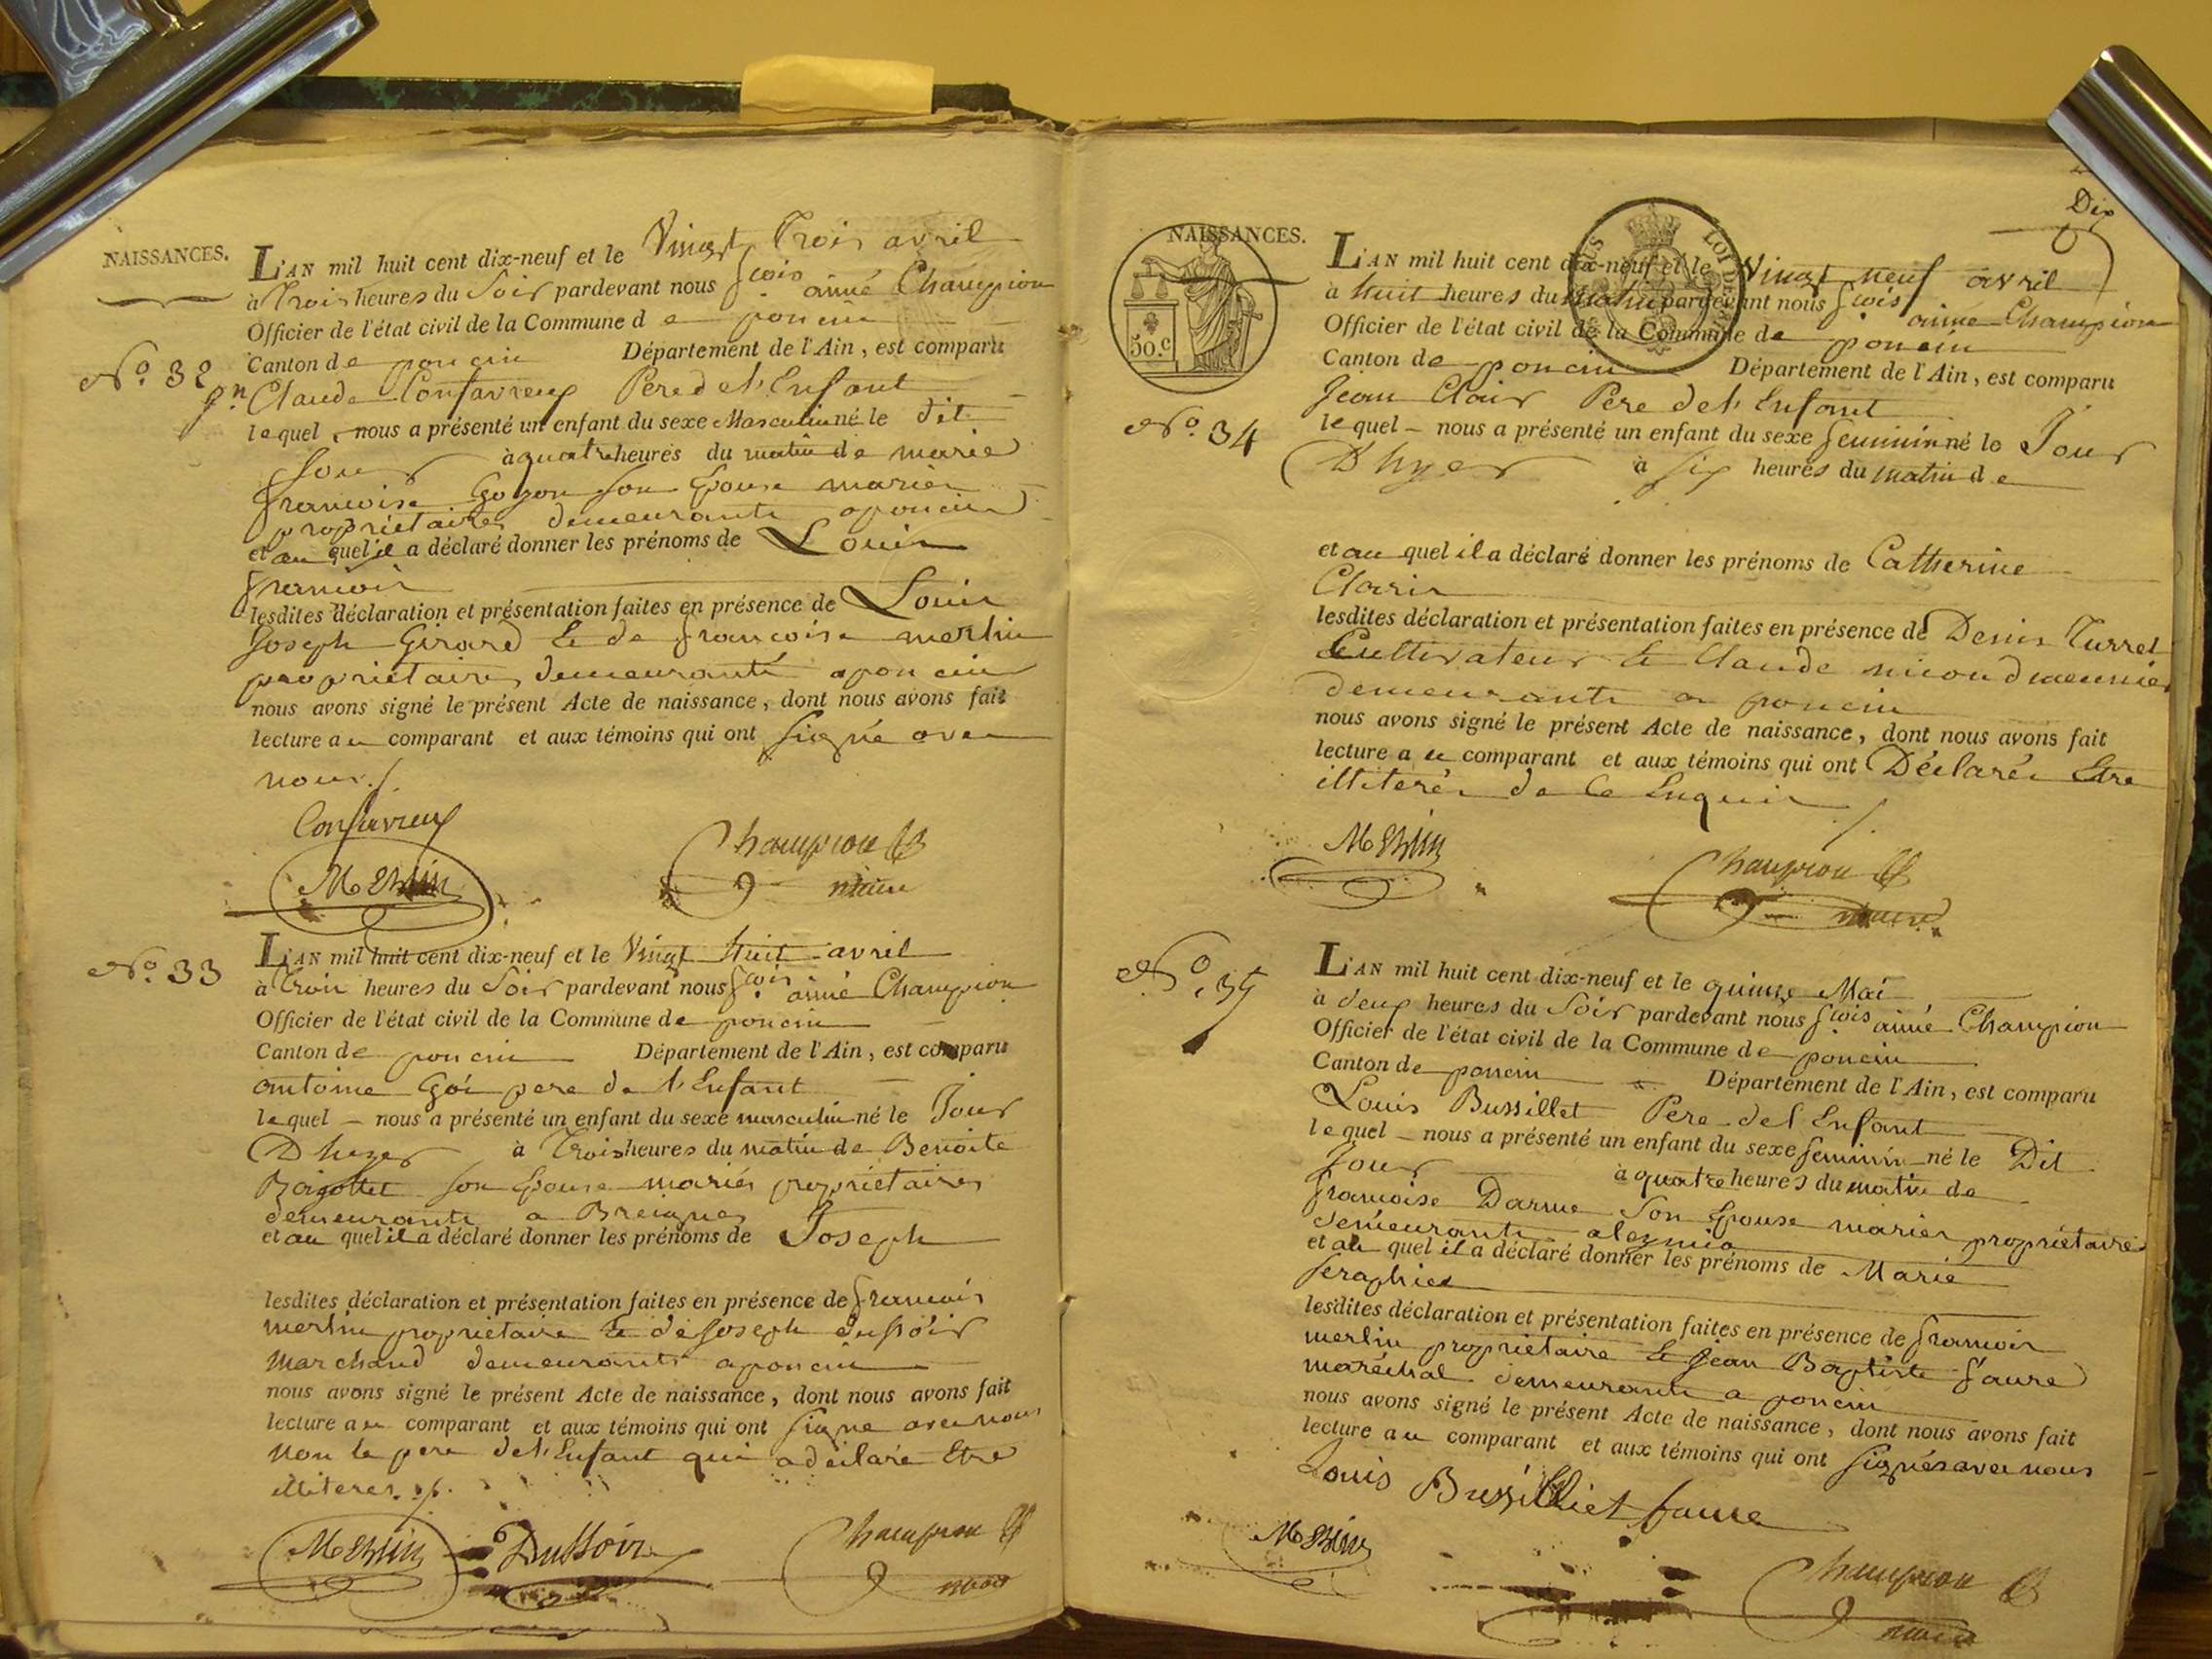 NAISSANCES.
L'AN mil huit cent dix-neuf et le Vingt Trois avril
à Trois heures du Soir pardevant nous fcois aimé Champion
Officier de l'état civil de la Commune de poncin
Canton de poncin Département de l'Ain, est comparu
N.º 32
Claude Confavreux Pere de l'Enfant
lequel nous a présenté un enfant du sexe Masculin né le dit
Jour à quatre heures du matin de marie
francoise Gozon son Epouse mariés
propriétaires demeurants a poncin
et au quel il a déclaré donner les prénoms de Louis
francois
lesdites déclaration et présentation faites en présence de Louis
Joseph Girard Et de francoise merlin
propriétaires demeurants a poncin
nous avons signé le présent Acte de naissance, dont nous avons fait
lecture au comparant et aux témoins qui ont signé avec
nous ./.
Confavreux
Merlin
Champion
maire
N.º 33
L'AN mil huit cent dix-neuf et le Vingt huit avril
à Trois heures du Soir pardevant nous fcois aimé Champion
Officier de l'état civil de la Commune de poncin
Canton de poncin Département de l'Ain, est comparu
antoine Goi pere de l'Enfant
lequel – nous a présenté un enfant du sexe masculin né le Jour
D hyer à Trois heures du matin de Benoite
son Epouse mariés propriétaires
demeurants a Breignes
et au quel il a déclaré donner les prénoms de Joseph
lesdites déclaration et présentation faites en présence de francois
merlin propriétaire Et de Joseph dussoir
marchand demeurants a poncin
nous avons signé le présent Acte de naissance, dont nous avons fait
lecture au comparant et aux témoins qui ont signe avec nous
non le pere de l'Enfant qui a déclaré Etre
illiteres ./.
Merlin
Dussoir
Champion
maire
Dix
NAISSANCES.
50.c
LOI DE
L'AN mil huit cent dix-neuf et le Vingt neuf avril
à huit heures du matin pardevant nous fcois aimé Champion
Officier de l'état civil de la Commune de poncin
Canton de poncin Département de l'Ain, est comparu
Jean Clair Pere de l'Enfant
N.º 34
lequel – nous a présenté un enfant du sexe feminin né le Jour
D hyer à six heures du matin de
et au quel il a déclaré donner les prénoms de Catherine
Claris
lesdites déclaration et présentation faites en présence de Denis Turrel
Cultivateur Et Claude nicoud meunier
demeurants a poncin
nous avons signé le présent Acte de naissance, dont nous avons fait
lecture au comparant et aux témoins qui ont Déclarés Etre
illiterés de Ce Enquis ./.
Merlin
Champion
maire
N.º 35
L'AN mil huit cent dix-neuf et le quinze Mai
à deux heures du Soir pardevant nous fcois aimé Champion
Officier de l'état civil de la Commune de poncin
Canton de poncin Département de l'Ain, est comparu
Louis Bussillet Pere de l'Enfant
lequel – nous a présenté un enfant du sexe feminin né le Dit
Jour à quatre heures du matin de
francoise Darme Son Epouse mariés propriétaires
demeurants a leymia
et au quel il a déclaré donner les prénoms de Marie
Seraphie
lesdites déclaration et présentation faites en présence de francois
merlin propriétaire Et Jean Baptiste faure
maréchal demeurants a poncin
nous avons signé le présent Acte de naissance, dont nous avons fait
lecture au comparant et aux témoins qui ont signés avec nous
Louis Bussilliet faure
Merlin
Champion
maire